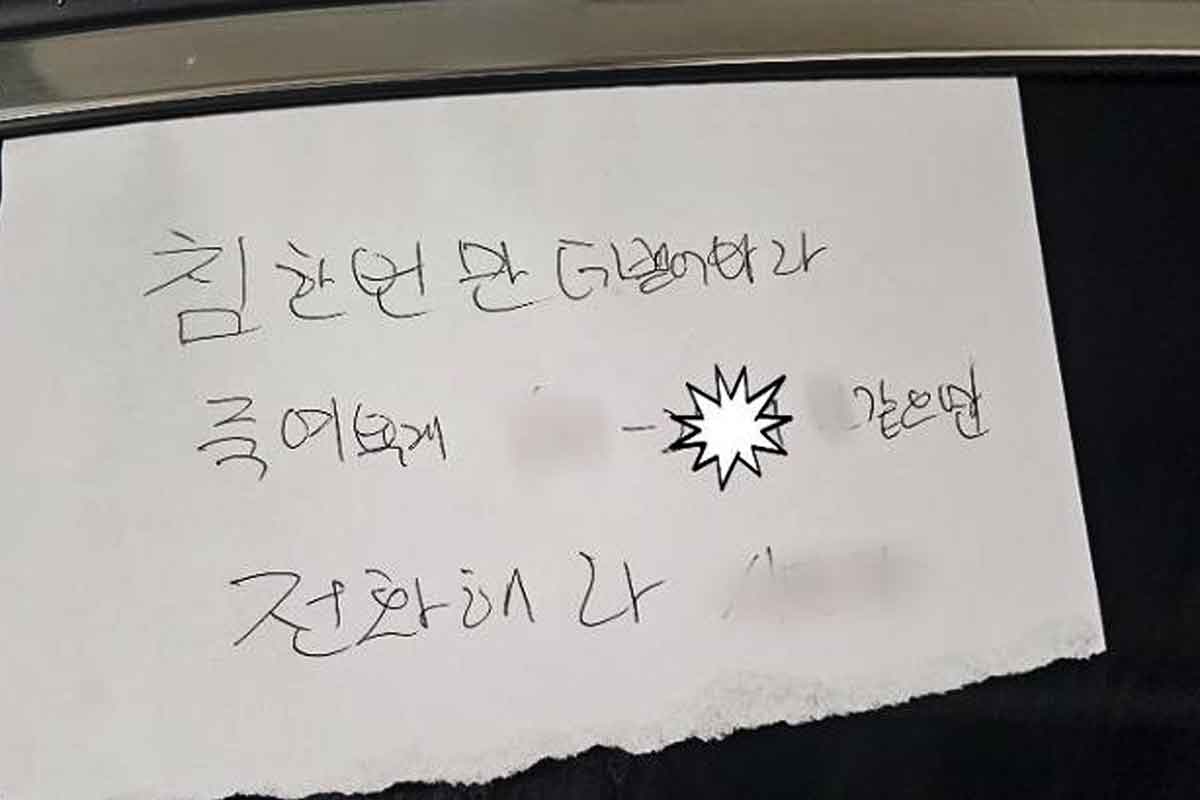 침 한번 만 더 뱉어바라
죽여 같으면
전화해라